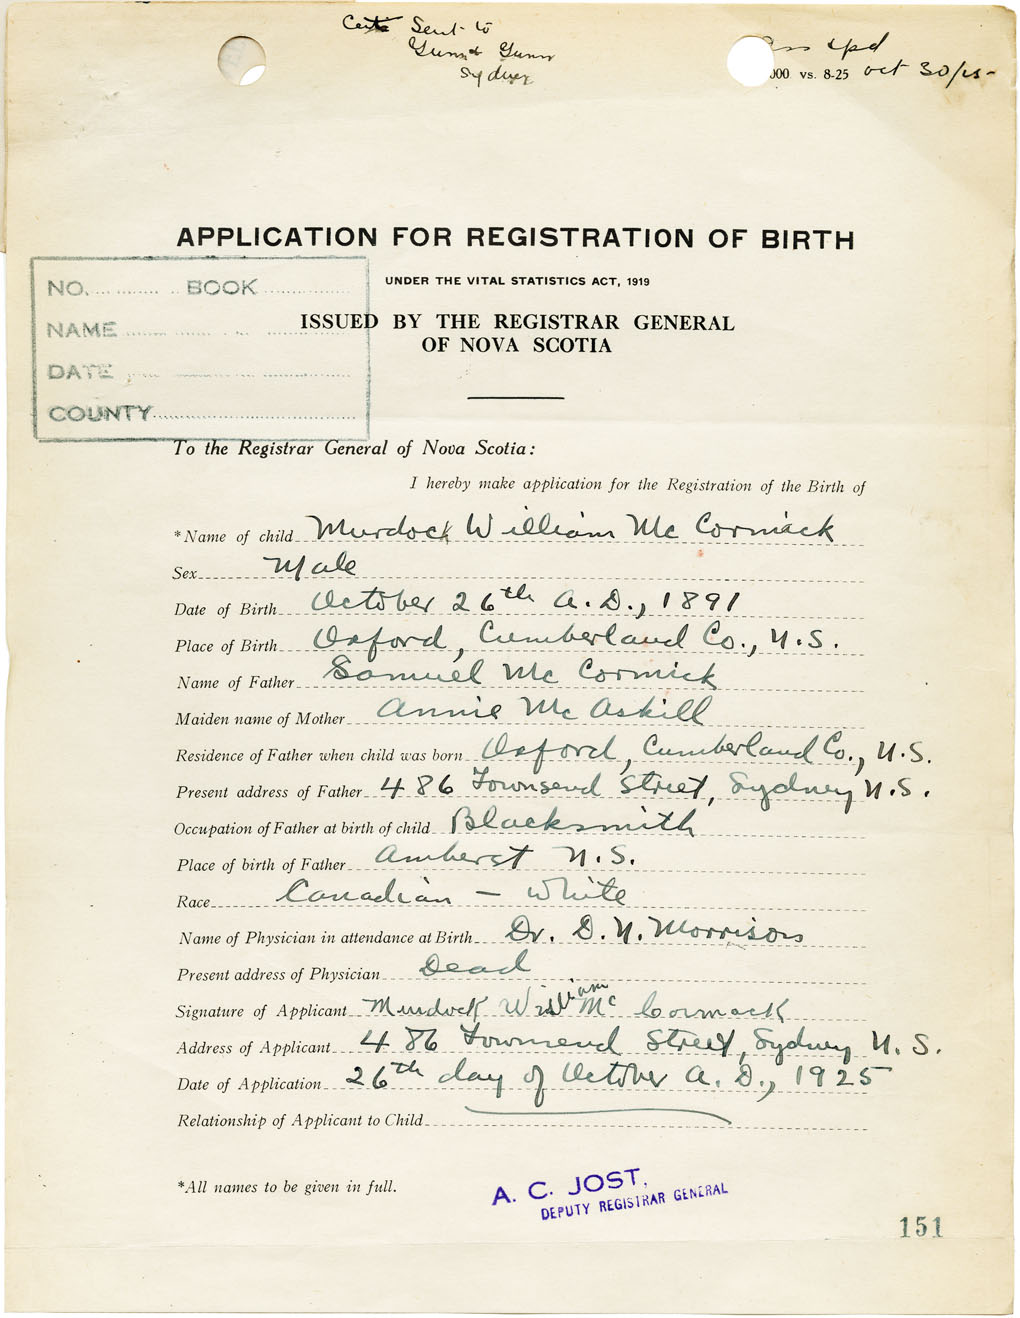 Cert Sent to
Gunn & Gunn
Sydney
Pass
000 vs. 8-25 Oct 30/25-
APPLICATION FOR REGISTRATION OF BIRTH
UNDER THE VITAL STATISTICS ACT, 1919
ISSUED BY THE REGISTRAR GENERAL
OF NOVA SCOTIA
NO. BOOK
NAME
DATE
COUNTY
To the Registrar General of Nova Scotia:
I hereby make application for the Registration of the Birth of
*Name of child Murdock William Mc Cormack
Sex Male
Date of Birth October 26th A. D., 1891
Place of Birth Oxford, Cumberland Co., N.S.
Name of Father Samuel Mc Cormick
Maiden name of Mother Annie Mc Askill
Residence of Father when child was born Oxford, Cumberland Co., N.S.
Present address of Father 486 Townsend Street, Sydney N.S.
Occupation of Father at birth of child Blacksmith
Place of birth of Father Amherst N.S.
Race Canadian - White
Name of Physician in attendance at Birth Dr. D. N. Morrison
Present address of Physician Dead
Signature of Applicant Murdock William Mc Cormack
Address of Applicant 486 Townsend Street, Sydney N. S.
Date of Application 26th day of October A. D., 1925
Relationship of Applicant to Child
*All names to be given in full.
A. C. JOST,
DEPUTY REGISTRAR GENERAL
151